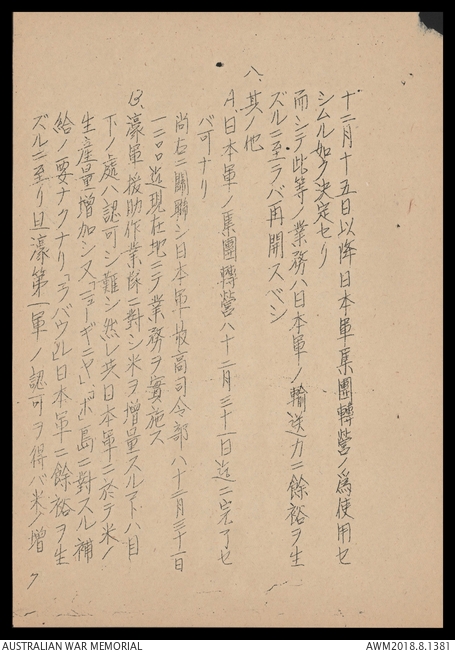 十二月十五日以降日本軍集團轉營ノ為使用セ
シムル如ク決定セリ
而シテ此等ノ業務ハ日本軍ノ輸送力ニ餘裕ヲ生
ズルニ至ラバ再開スベシ
八、其ノ他
A、日本軍ノ集團轉營ハ十二月三十一日迄ニ完了セ
バ可ナリ
尚右ニ關聯シ日本軍最高司令部ハ十二月三十一日
一二〇〇迄現在地ニテ業務ヲ實施ス
B、濠軍援助作業隊ニ對シ米ヲ増量スルコトハ目
下ノ處ハ認可シ難シ然レ共日本軍ニ於テ米ノ
生産量増加シ又「ニューギニヤ」、「ボ」島ニ對スル補
給ノ要ナクナリ「ラバウル」日本軍ニ餘裕ヲ生
ズルニ至リ且濠第一軍ノ認可ヲ得バ米ノ増
7
AUSTRALIAN WAR MEMORIAL
AWM2018.8.1381